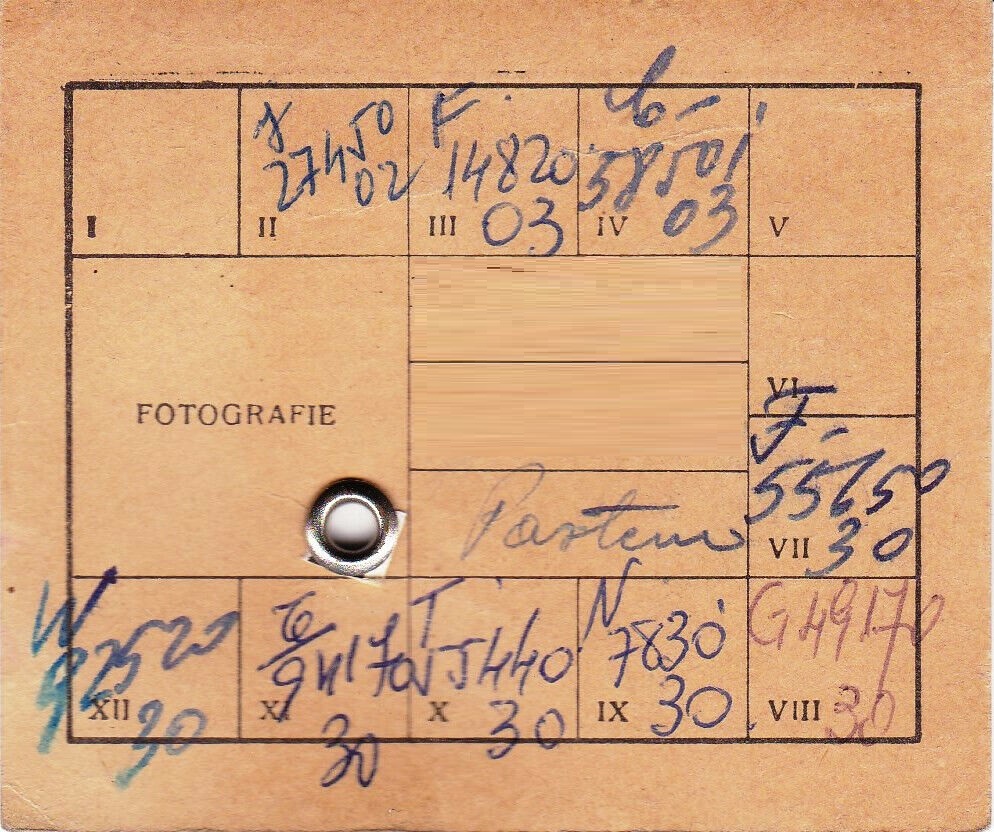 I
II
27450
02
F
14820
03
III
58501
03
IV
V
FOTOGRAFIE
VI
F
55650
30
VII
W
92520
30
XII
94170
30
XI
T
55440
30
X
N
7830
30
IX
G 49170
30
VIII